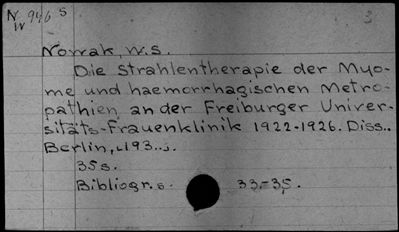 N 946 S 3
W
Nowak, W.S.
Die Strahlentherapie der Myo-
me und haemorrhagischen Metro-
pathien an der Freiburger Univer-
sitäts-Frauenklinik 1922-1926. Diss..
Berlin, 193..
35 s.
Bibliogr. s. 33-35.